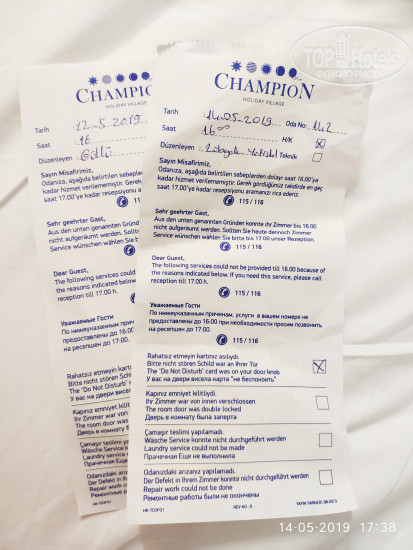 CHAMPION
HOLIDAY VILLAGE
Tarih 12-5-2019
Saat 16
Düzenleyen
Sayın Misafirimiz,
Odanıza, aşağıda belirtilen
kadar hizmet verilememiştir.
saat 17.00'ye kadar resepsiyonu
Sehr geehrter Gast,
Aus den unten genannten
nicht aufgeräumt werden.
Service wünschen wählen Sie
Dear Guest,
The following services could
the reasons indicated below.
reception till 17.00 h.
Уважаемые Гости
По нижеуказанным причинам,
предоставлены до 16:00
на ресепшен до 17:00.
Rahatsız etmeyin kartınız
Bitte nicht stören Schild
The 'Do Not Disturb' card
У вас на двери висела
Kapınız emniyet kilitliydi.
Ihr Zimmer war von innen
The room door was double
Дверь в комнату была
Çamaşır teslimi yapılamadı.
Wäsche Service konnte
Laundry service could
Прачечная Еще не
Odanızdaki arızanız
Der Defekt in Ihrem
Repair work could
Ремонтные работы
HK-TCOFO1
CHAMPION
HOLIDAY VILLAGE
Tarih 14.05-2019 Oda No: 142
Saat 16 00 H/K
Düzenleyen Teknik
Sayın Misafirimiz,
Odanıza, aşağıda belirtilen sebeplerden dolayı saat 16.00'ya
kadar hizmet verilememiştir. Gerek gördüğünüz takdirde en geç
saat 17.00'ye kadar resepsiyonu aramanızı rica ederiz.
115 / 116
Sehr geehrter Gast,
Aus den unten genannten Gründen konnte ihr Zimmer bis 16.00
nicht aufgeräumt werden. Sollten Sie heute dennoch Zimmer
Service wünschen wählen Sie bitte bis 17.00 unser Rezeption.
115 / 116
Dear Guest,
The following services could not be provided till 16.00 because of
the reasons indicated below. If you need this service, please call
reception till 17.00 h.
115 / 116
Уважаемые Гости
По нижеуказанным причинам, услуги в вашем номере не
предоставлены до 16:00 при необходимости просим позвонить
на ресепшен до 17:00.
115 / 116
Rahatsız etmeyin kartınız asılıydı.
Bitte nicht stören Schild war an Ihrer Tür
The 'Do Not Disturb' card was on your door lends
У вас на двери висела карта "не беспокоить"
Kapınız emniyet kilitliydi.
Ihr Zimmer war von innen verschlossen
The room door was double locked
Дверь в комнату была заперта
Çamaşır teslimi yapılamadı.
Wäsche Service konnte nicht durchgeführt werden
Laundry service could not be made
Прачечная Еще не выполнила
Odanızdaki arızanız yapılamadı.
Der Defekt in Ihrem Zimmer konnte nicht durchgeführt werden
Repair work could not be done
Ремонтные работы были не окончены
HK-TCOFO1 REV NO : 0
TOP Hotels
14-05-2019 17:38